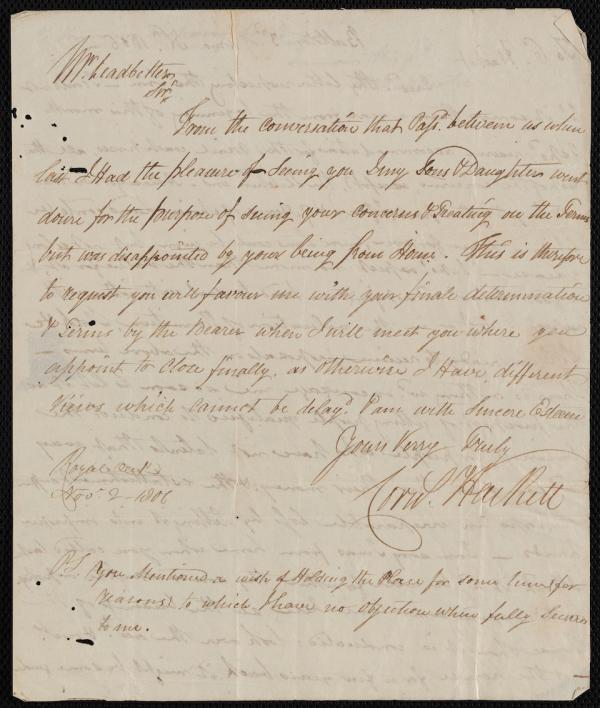 Mr. Leadbetter
Sir
From the conversation that Pass'd between us when
last I Had the pleasure of Seeing you I my Sons & Daughters went
down for the purpose of seeing your concerns & Treating on the Terms
but was disappointed by your being from Home. This is therefore
to request you will favour me with your finale determination
& Terms by the Bearer when I will meet you where you
appoint to Close finally, as otherwise I Have different
Views which cannot be delay'd. I am with Sincere Esteem
Yours Verry Truly
Corn.s Hackett
Royal Oak
Nov.r 2 - 1806
P.S. You Mentioned a wish of Holding the Place for some time (for
reasons) to which I have no Objection when fully Secured
to me.